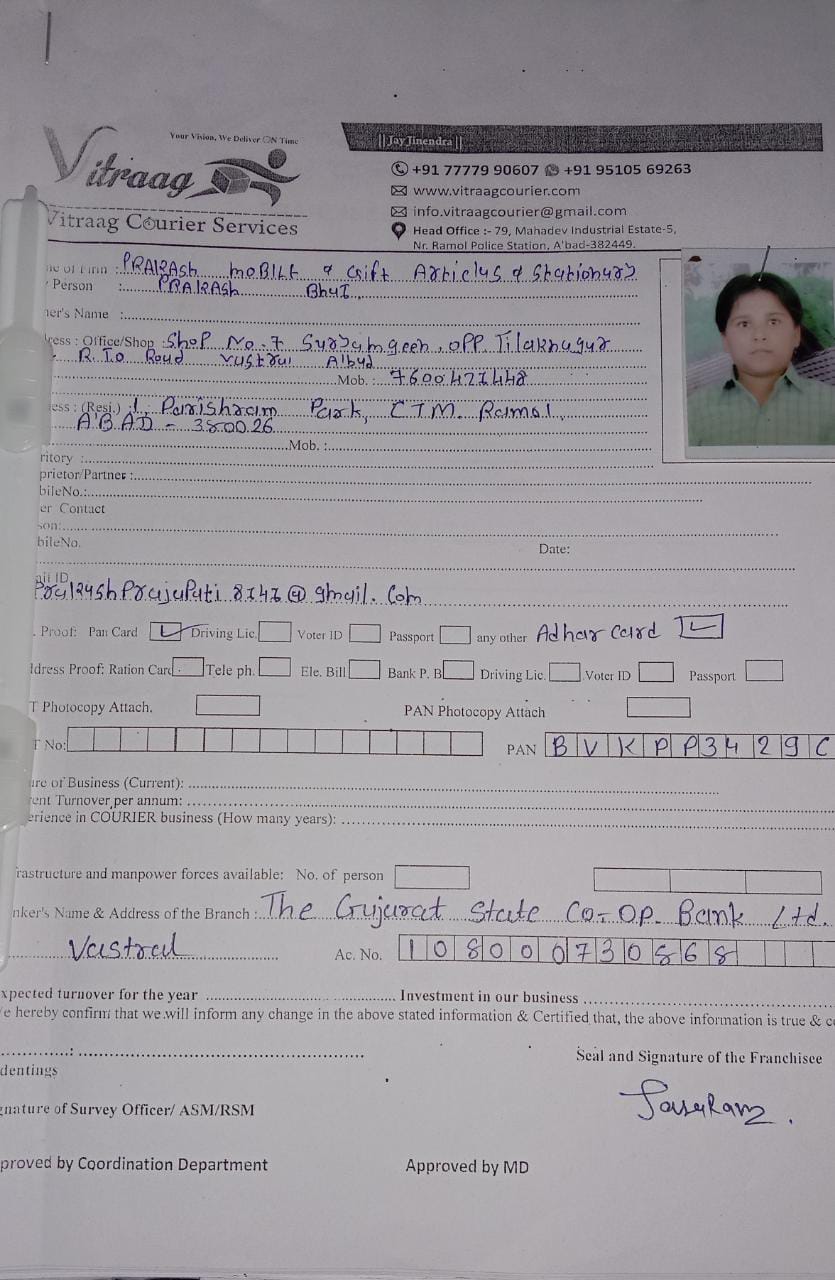 Your Vision, We Deliver ON Time
|| Jay Jinendra ||
Vitraag
Vitraag Courier Services
+91 77779 90607 +91 95105 69263
www.vitraagcourier.com
info.vitraagcourier@gmail.com
Head Office :- 79, Mahadev Industrial Estate-5,
Nr. Ramol Police Station, A'bad-382449.
me of Firm : PRAKASh moBILE & Gift Articlus & Stationurs
Person : PRAKASh Bhui
ner's Name :
ress : Office/Shop : ShoP No.7 Suryamgeen, opp. Tilaknugur
R.To Roud vustrui A'bud
Mob. : 7600471448
ess : (Resi.) 1, Parishram Park, CTM. Ramol,
A'BAD - 380026
Mob. :
ritory :
prietor/Partner :
bileNo.:
er Contact
son:
bileNo. Date:
ail ID
PrakashPrajapati8747@gmail.com
. Proof: Pan Card Driving Lic. Voter ID Passport any other Adhar card
ldress Proof: Ration Card Tele ph. Ele. Bill Bank P. B Driving Lic. Voter ID Passport
T Photocopy Attach. PAN Photocopy Attach
T No: PAN BVKPP3429C
ure of Business (Current):
rent Turnover per annum:
erience in COURIER business (How many years):
rastructure and manpower forces available: No. of person
nker's Name & Address of the Branch : The Gujarat State Co-Op. Bank Ltd.
Vastral Ac. No. 108000730868
xpected turnover for the year Investment in our business
e hereby confirm that we will inform any change in the above stated information & Certified that, the above information is true & c
Seal and Signature of the Franchisee
dentings
gnature of Survey Officer/ ASM/RSM
proved by Coordination Department Approved by MD